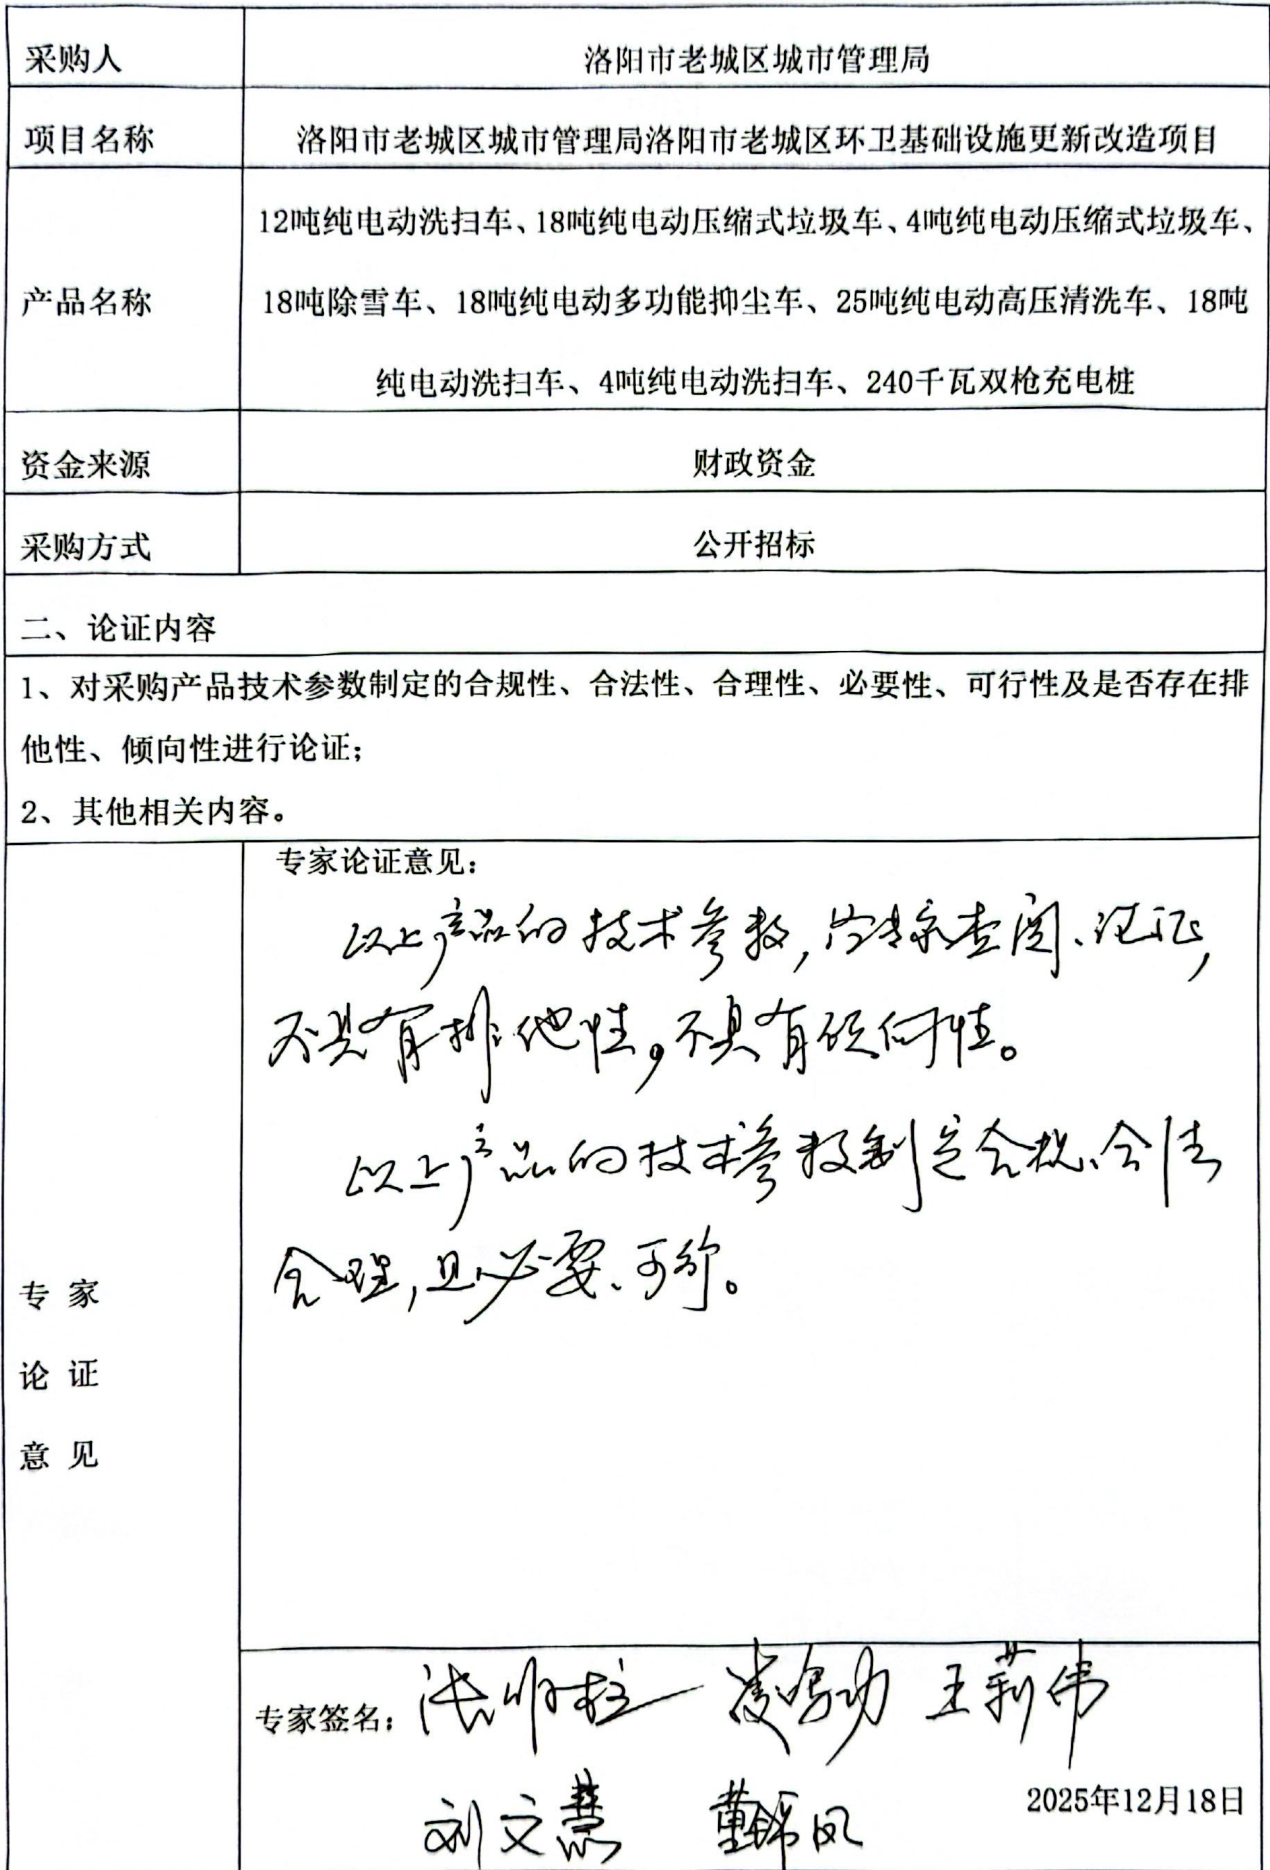 采购人 洛阳市老城区城市管理局
项目名称 洛阳市老城区城市管理局洛阳市老城区环卫基础设施更新改造项目
12吨纯电动洗扫车、18吨纯电动压缩式垃圾车、4吨纯电动压缩式垃圾车、
产品名称 18吨除雪车、18吨纯电动多功能抑尘车、25吨纯电动高压清洗车、18吨
纯电动洗扫车、4吨纯电动洗扫车、240千瓦双枪充电桩
资金来源 财政资金
采购方式 公开招标
二、论证内容
1、对采购产品技术参数制定的合规性、合法性、合理性、必要性、可行性及是否存在排
他性、倾向性进行论证；
2、其他相关内容。
专家论证意见：
以上产品的技术参数，专家查阅、论证，
不具有排他性，不具有倾向性。
以上产品的技术参数制定合规、合法
合理，且必要、可行。
专 家
论 证
意 见
专家签名： 王莉伟
2025年12月18日
刘文慧